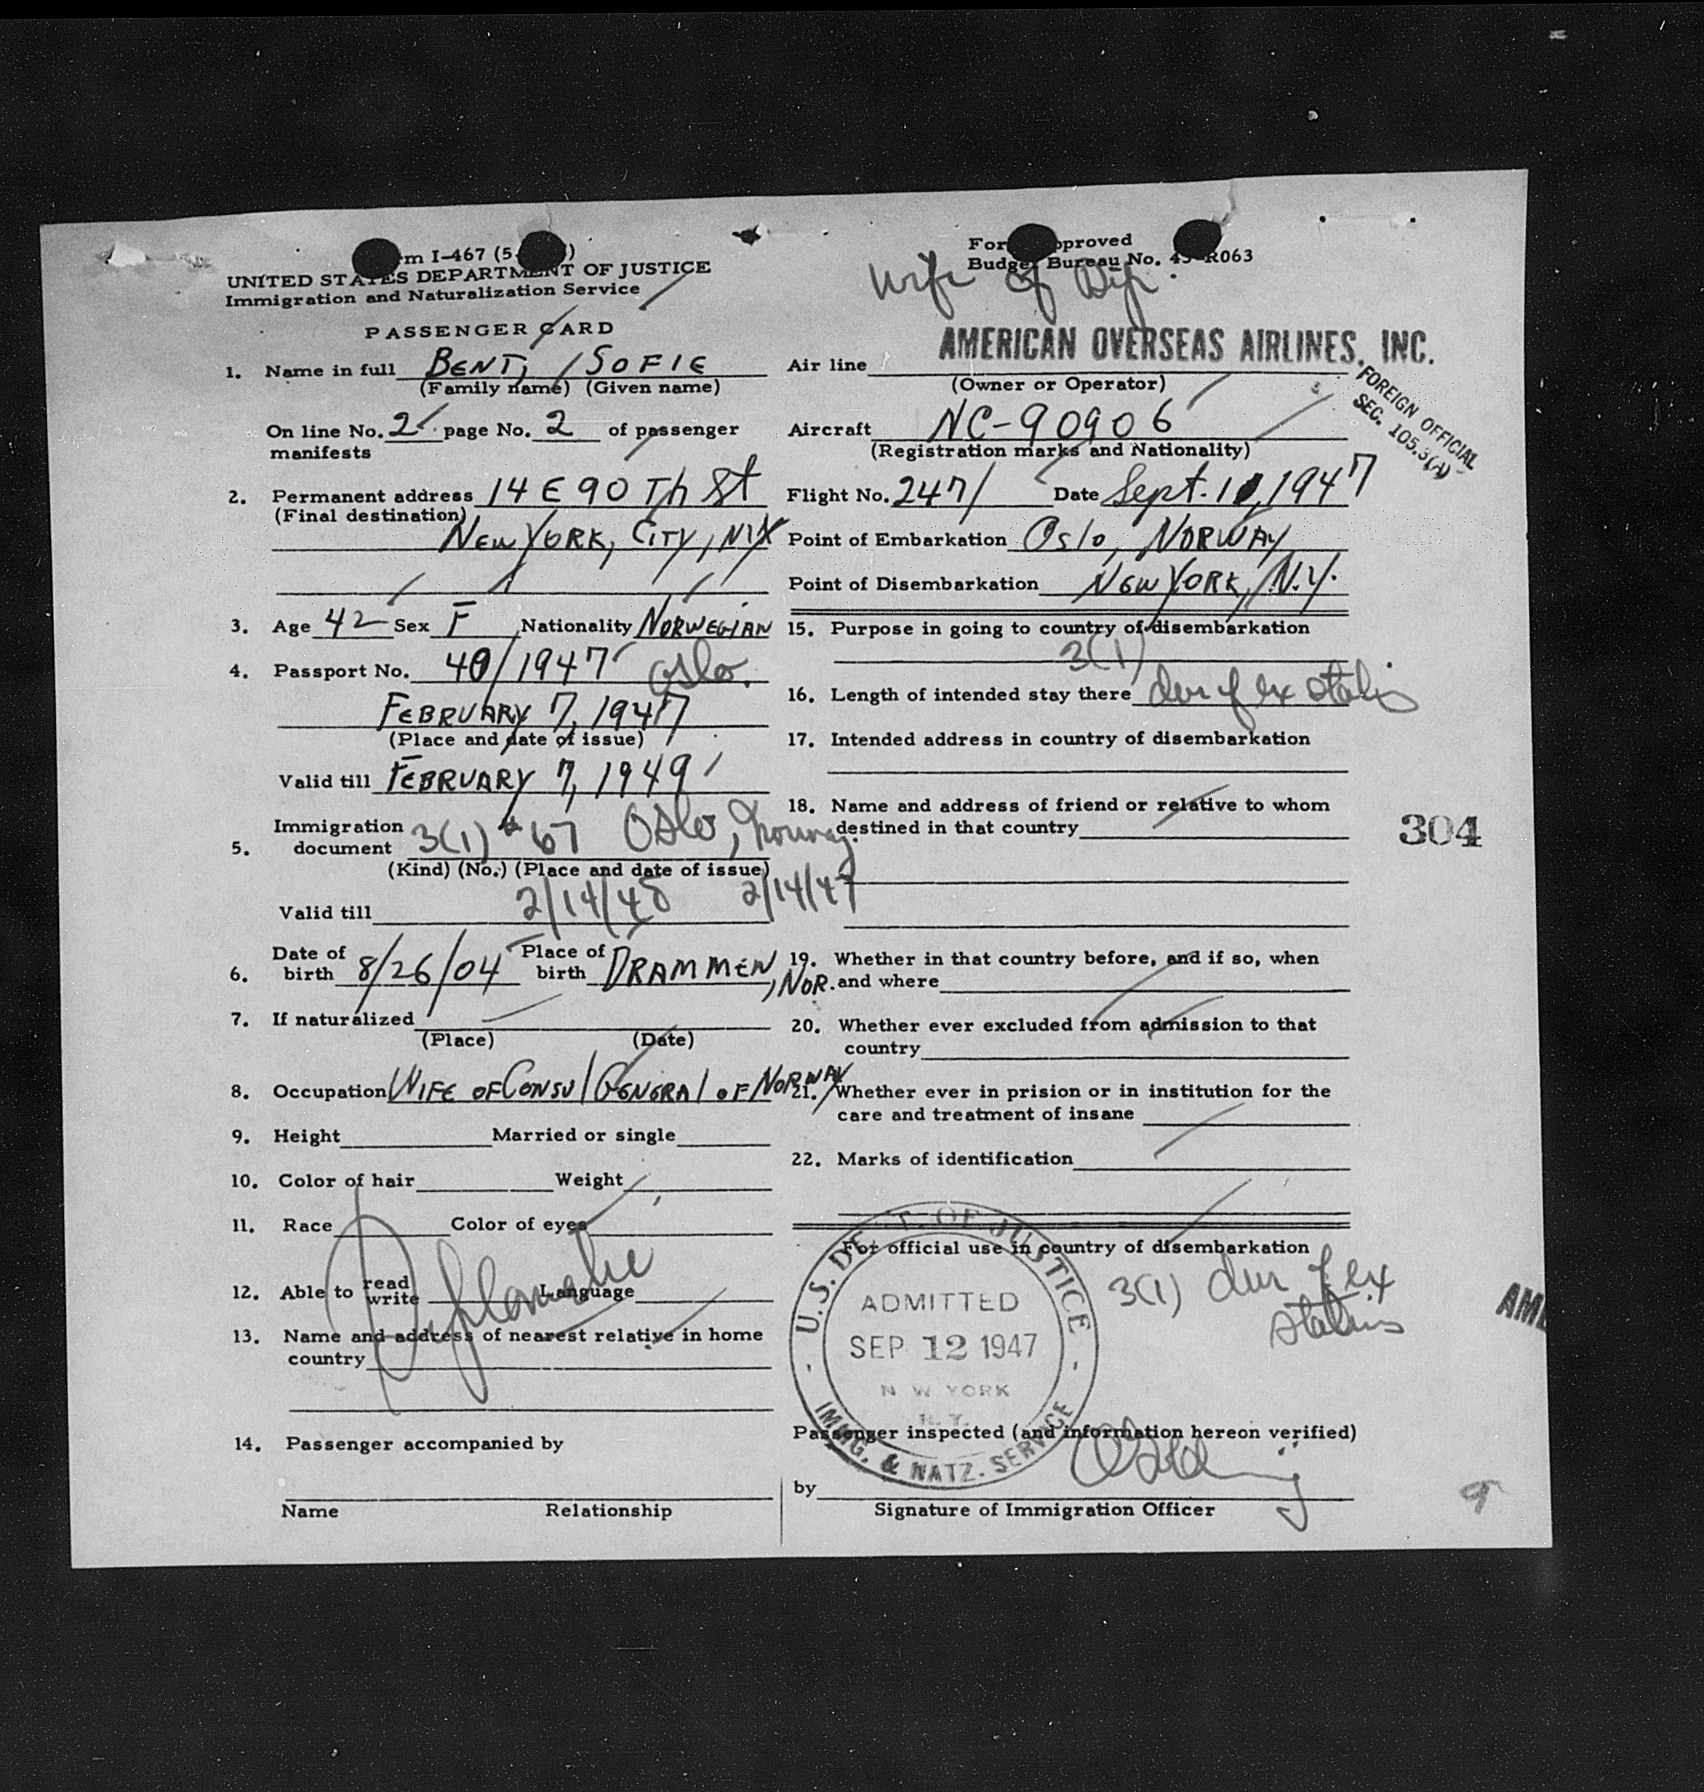 m I-467 (5-
UNITED STATES DEPARTMENT OF JUSTICE
Immigration and Naturalization Service
PASSENGER CARD
For pproved
Budget Bureau No. 43-R063
Wife of Dip.
1. Name in full BENT, SOFIE
(Family name) (Given name)
On line No. 2 page No. 2 of passenger
manifests
2. Permanent address 14 E 90 Th St
(Final destination)
NEW YORK, CITY, NY
3. Age 42 Sex F Nationality NORWEGIAN
4. Passport No. 40/1947 Oslo.
FEBRUARY 7, 1947
(Place and date of issue)
Valid till FEBRUARY 7, 1949
5. Immigration
document 3(1) # 67 Oslo, Norway.
(Kind) (No.) (Place and date of issue)
2/14/47
Valid till 2/14/48
6. Date of birth 8/26/04 Place of birth DRAMMEN, NOR.
7. If naturalized
(Place) (Date)
8. Occupation WIFE OF CONSUL GENERAL OF NORWAY
9. Height Married or single
10. Color of hair Weight
11. Race Color of eyes
12. Able to read write Language
13. Name and address of nearest relative in home
country
14. Passenger accompanied by
Name Relationship
AMERICAN OVERSEAS AIRLINES, INC.
Air line
(Owner or Operator)
FOREIGN OFFICIAL
SEC. 105.3(A)
Aircraft NC-90906
(Registration marks and Nationality)
Flight No. 247/ Date Sept. 11, 1947
Point of Embarkation Oslo, NORWAY
Point of Disembarkation NEW YORK, N.Y.
15. Purpose in going to country of disembarkation
3(1)
16. Length of intended stay there dur of ex status
17. Intended address in country of disembarkation
18. Name and address of friend or relative to whom
destined in that country
304
19. Whether in that country before, and if so, when
and where
20. Whether ever excluded from admission to that
country
21. Whether ever in prision or in institution for the
care and treatment of insane
22. Marks of identification
For official use in country of disembarkation
U.S. DEPT. OF JUSTICE
ADMITTED
SEP 12 1947
N W YORK
N. Y.
IMMIG. & NATZ. SERVICE
3(1) dur of ex
status
Passenger inspected (and information hereon verified)
by
Signature of Immigration Officer